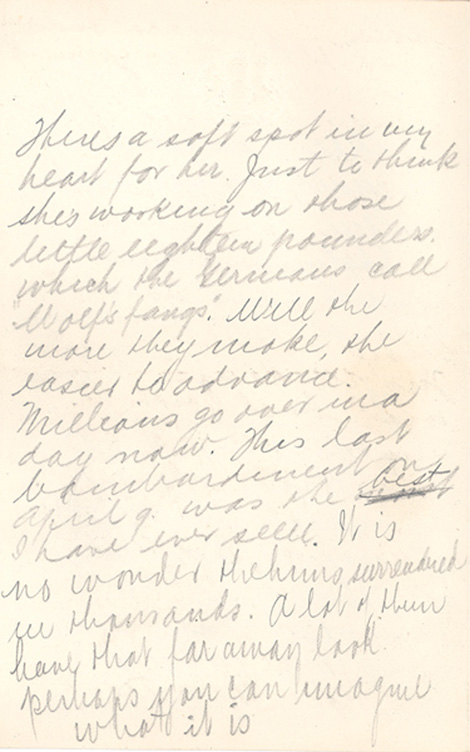 Theres a soft spot in my
heart for her. Just to think
she's working on those
little eighteen pounders.
which the Germans call
"Wolf's fangs". Well the
more they make, the
easier to advance.
Millions go over in a
day now. This last
bombardment on
April 9. was the best
I have ever seen. It is
no wonder the huns surrendered
in thousands. A lot of them
have that far away look
perhaps you can imagine
what it is